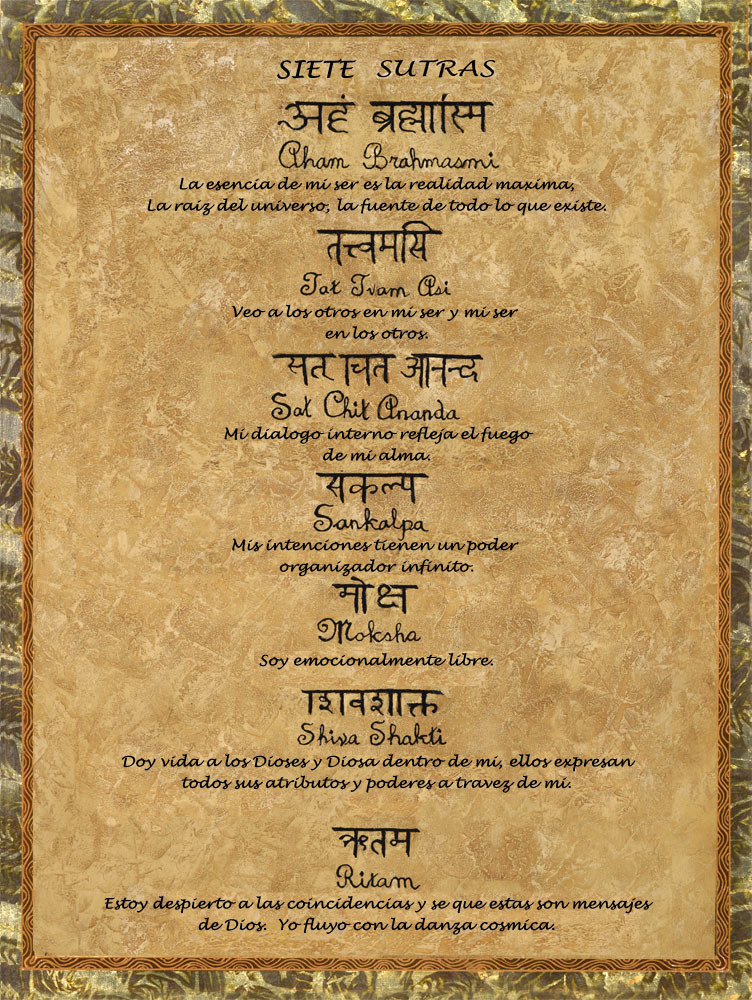 SIETE SUTRAS
अहं ब्रह्मास्मि
Aham Brahmasmi
La esencia de mi ser es la realidad maxima,
La raiz del universo, la fuente de todo lo que existe.
तत्त्वमसि
Tat Tvam Asi
Veo a los otros en mi ser y mi ser
en los otros.
सत चित आनन्द
Sat Chit Ananda
Mi dialogo interno refleja el fuego
de mi alma.
संकल्प
Sankalpa
Mis intenciones tienen un poder
organizador infinito.
मोक्ष
Moksha
Soy emocionalmente libre.
शिवशक्ति
Shiva Shakti
Doy vida a los Dioses y Diosa dentro de mi, ellos expresan
todos sus atributos y poderes a travez de mi.
ऋतम
Ritam
Estoy despierto a las coincidencias y se que estas son mensajes
de Dios. Yo fluyo con la danza cosmica.